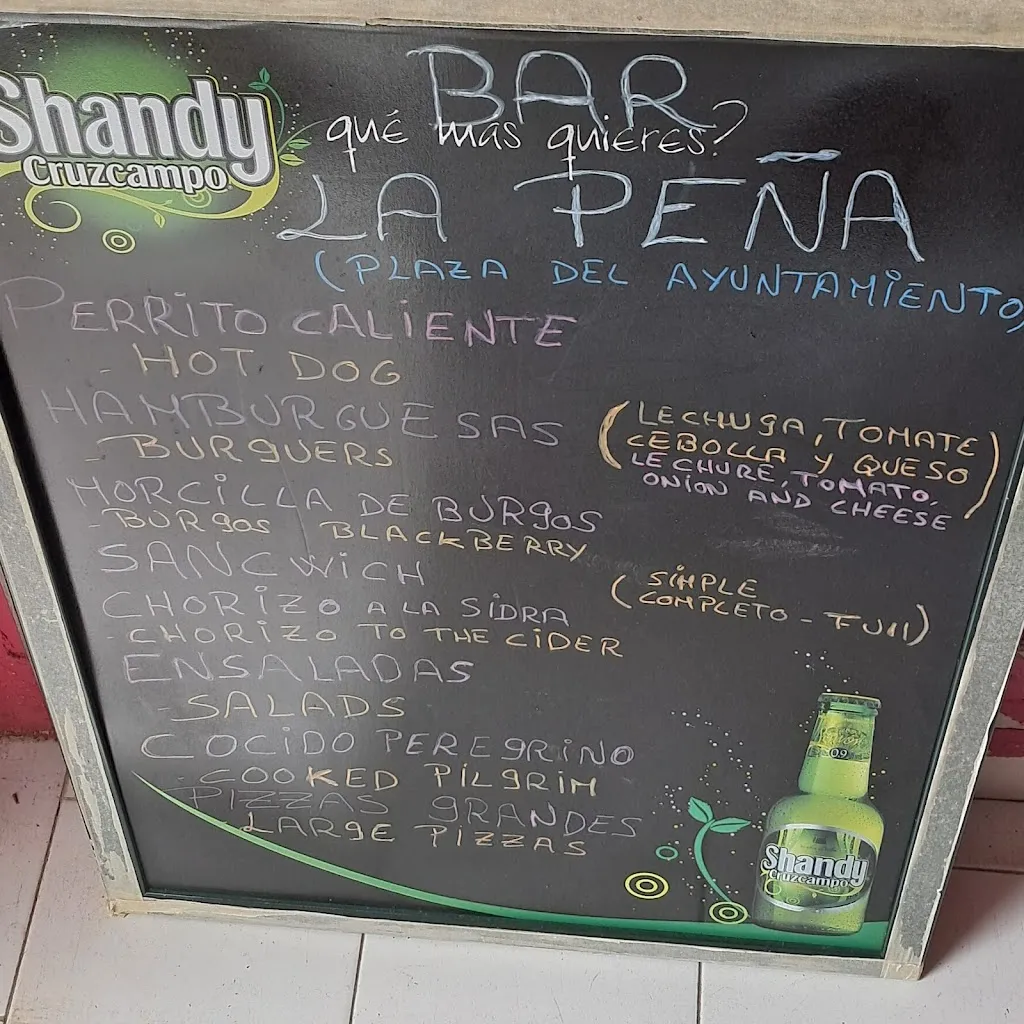 Shandy
Cruzcampo
BAR
qué más quieres?
LA PEÑA
(PLAZA DEL AYUNTAMIENTO)
PERRITO CALIENTE
- HOT DOG
HAMBURGUESAS
- BURGUERS
(LECHUGA, TOMATE
CEBOLLA Y QUESO
LECHURE, TOMATO,
ONION AND CHEESE)
MORCILLA DE BURGOS
- BURGOS BLACKBERRY
SANCWICH
(SIMPLE
COMPLETO - FUll)
CHORIZO A LA SIDRA
- CHORIZO TO THE CIDER
ENSALADAS
- SALADS
COCIDO PEREGRINO
- COOKED PILGRIM
PIZZAS GRANDES
LARGE PIZZAS
0,9
Shandy
Cruzcampo